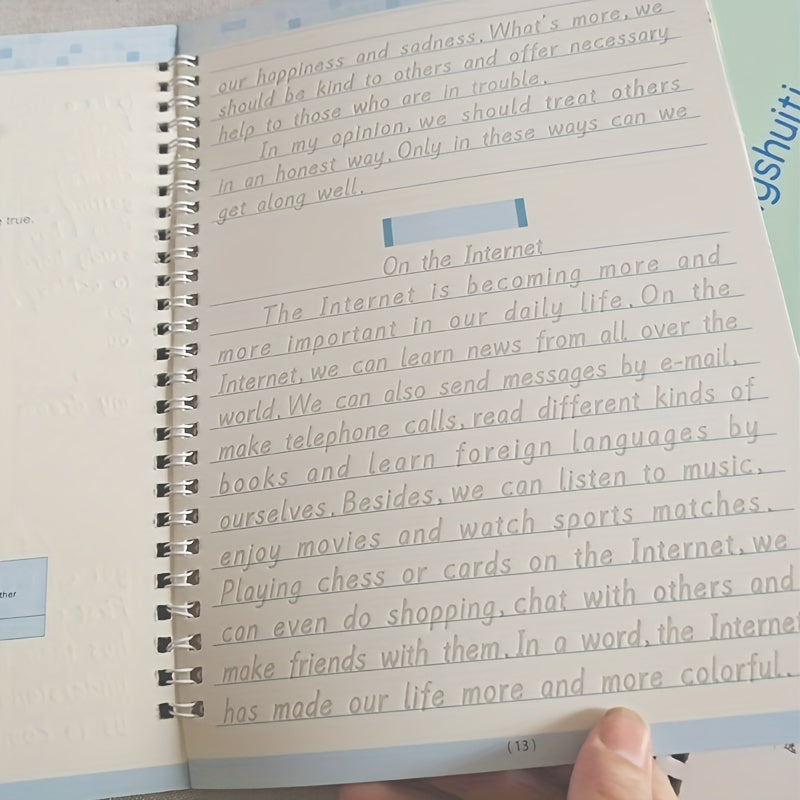 our happiness and sadness. What's more, we
should be kind to others and offer necessary
help to those who are in trouble.
In my opinion, we should treat others
in an honest way. Only in these ways can we
get along well.
On the Internet
The Internet is becoming more and
more important in our daily life. On the
Internet, we can learn news from all over the
world. We can also send messages by e-mail,
make telephone calls, read different kinds of
books and learn foreign languages by
ourselves. Besides, we can listen to music,
enjoy movies and watch sports matches.
Playing chess or cards on the Internet, we
can even do shopping, chat with others and
make friends with them. In a word, the Internet
has made our life more and more colorful.
(13)
true.
ther
gshuiti